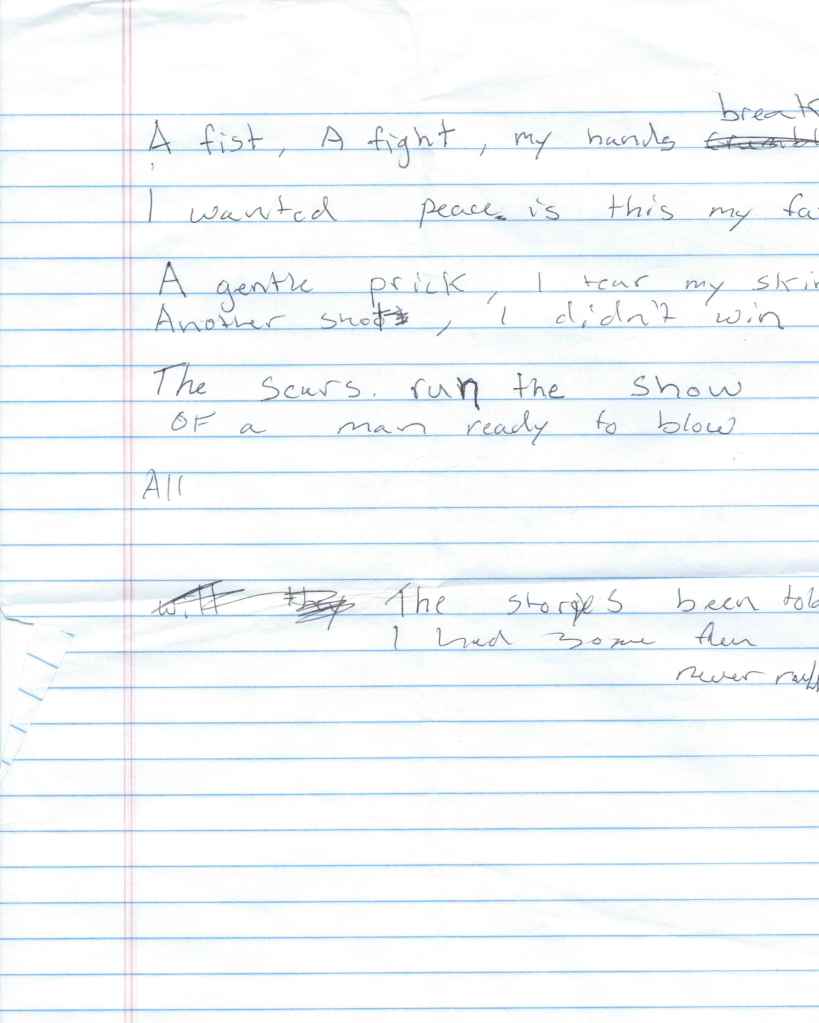 break
A fist, A fight, my hands
I wanted peace. is this my fa
A gentle prick, I tear my skin
Another shot, I didn't win
The scars. run the show
OF a man ready to blow
All
The story's been told
I had some fun
never